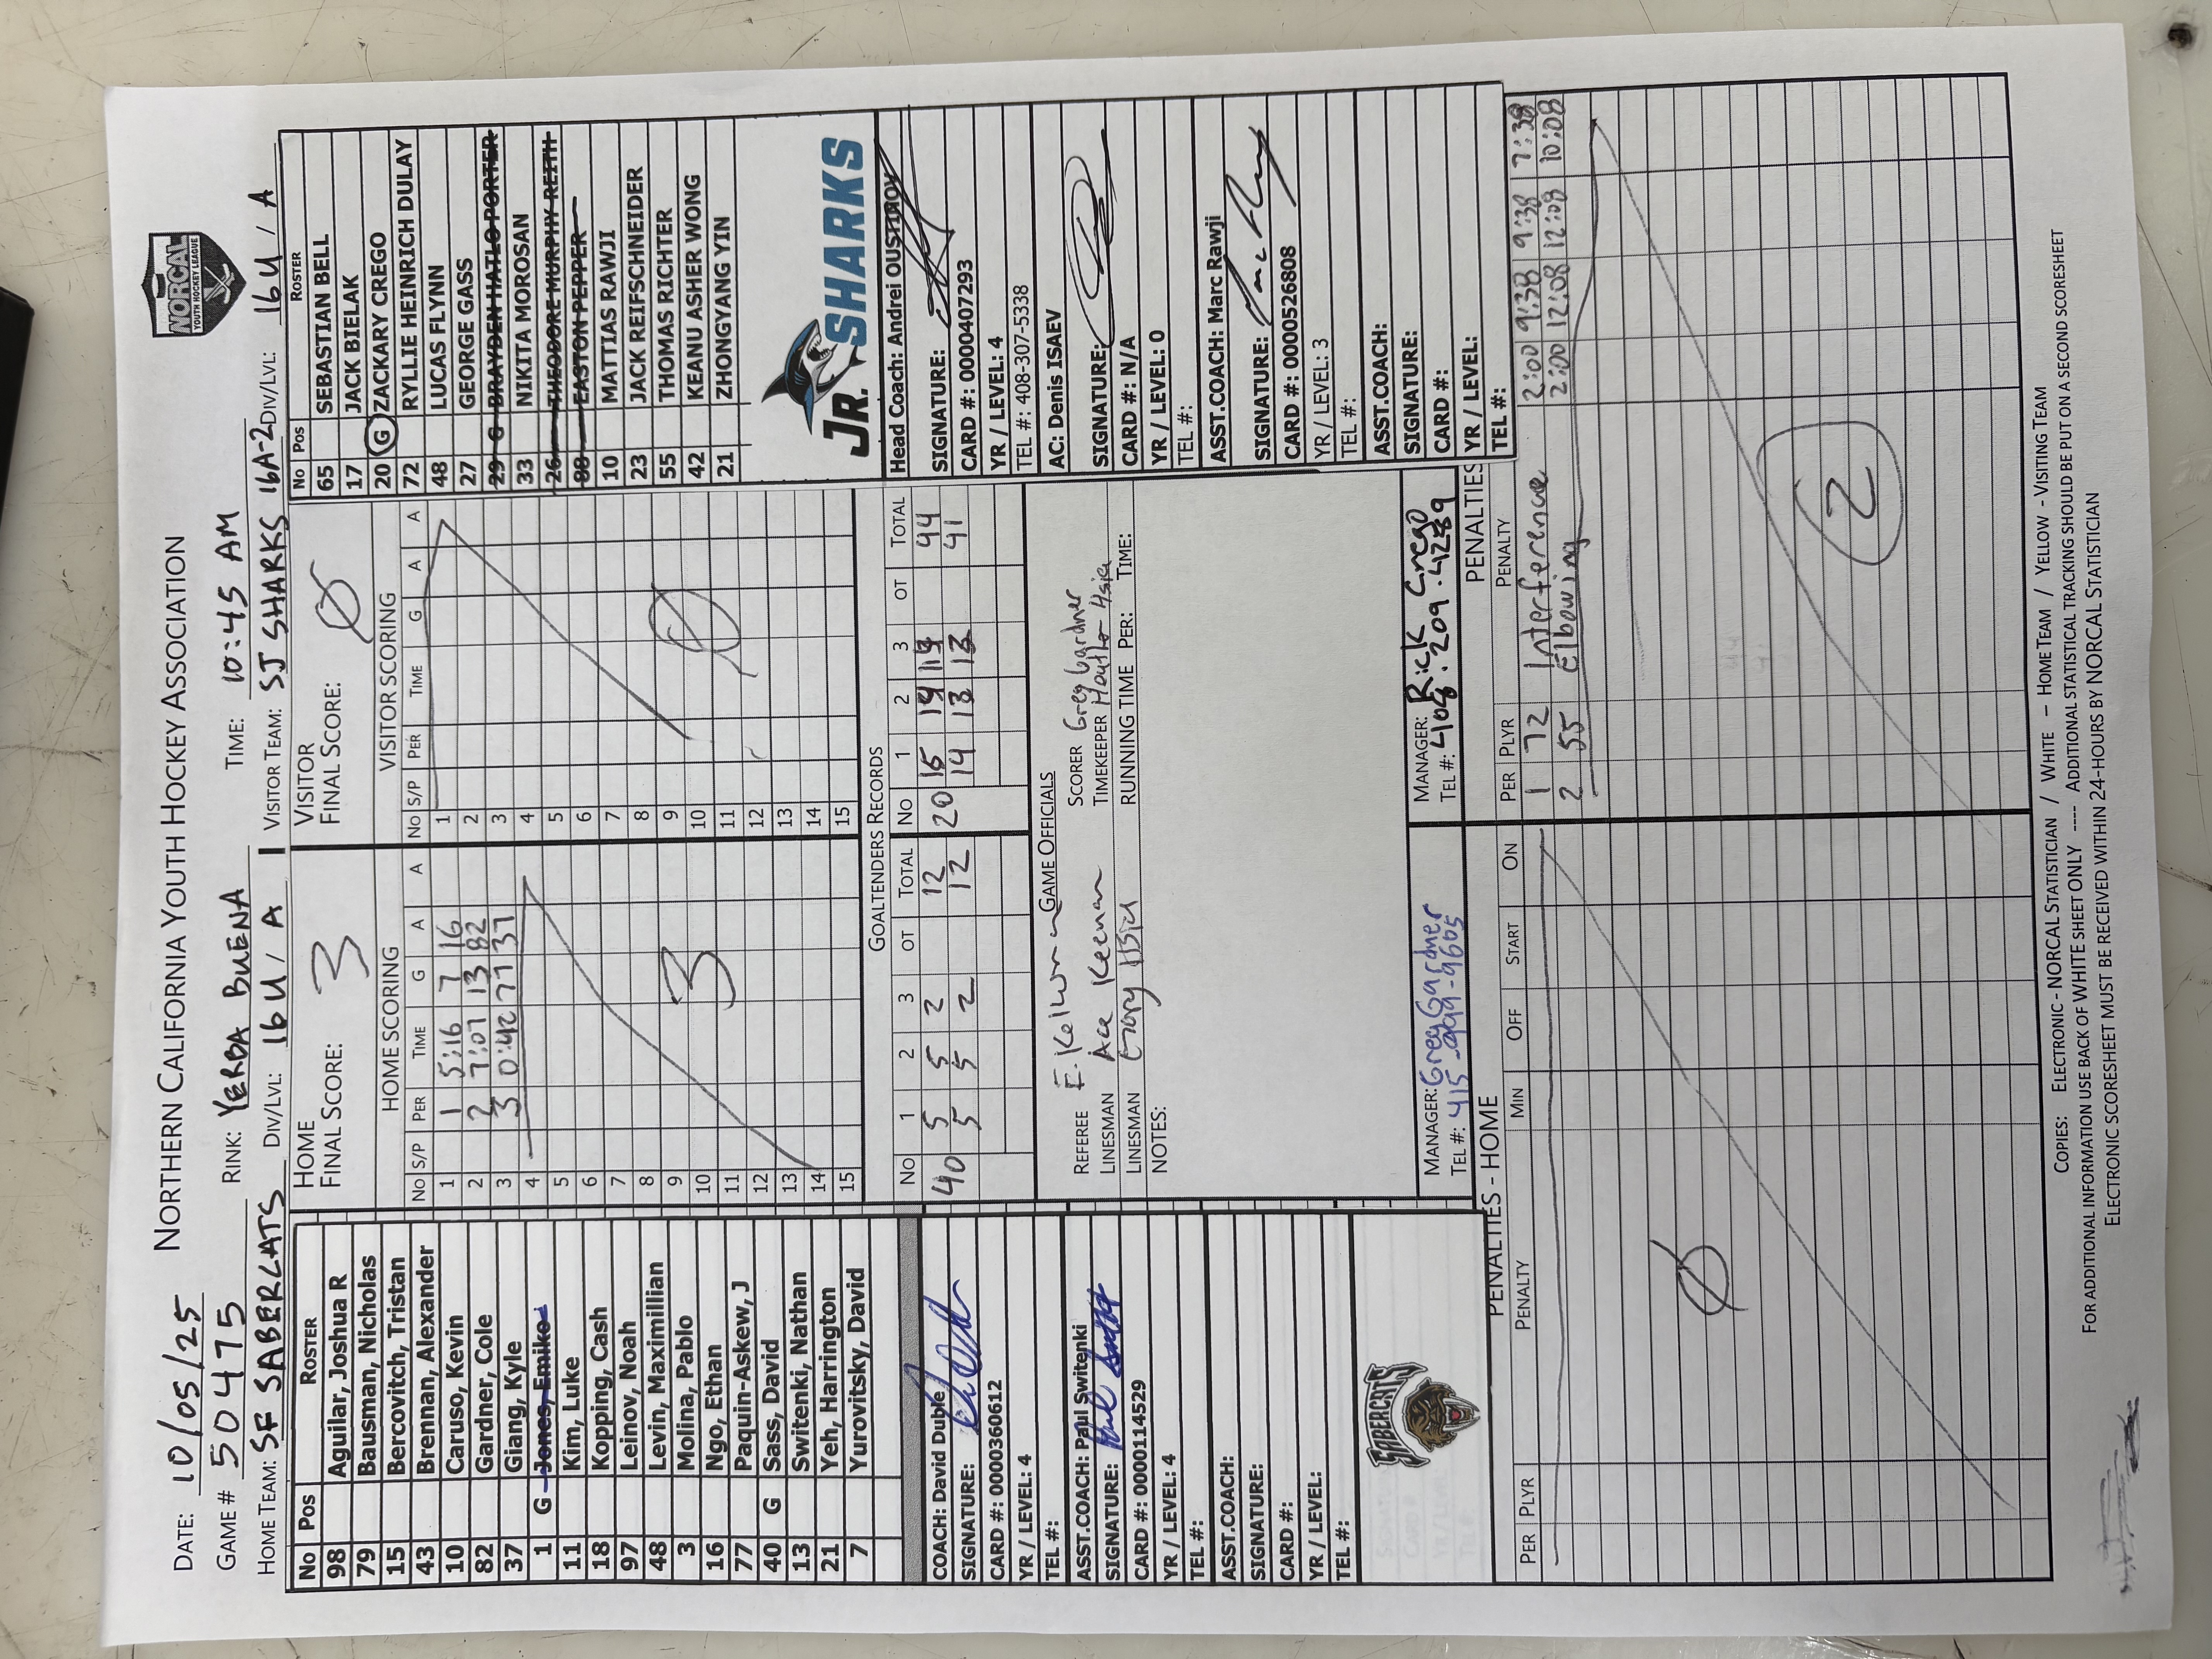 NORCAL
YOUTH HOCKEY LEAGUE
NORTHERN CALIFORNIA YOUTH HOCKEY ASSOCIATION
DATE: 10/05/25
GAME # 50475 RINK: YERBA BUENA TIME: 10:45 AM
HOME TEAM: SF SABERCATS DIV/LVL: 16U / A VISITOR TEAM: SJ SHARKS 16A-2 DIV/LVL: 16U / A
No Pos ROSTER
98 Aguilar, Joshua R
79 Bausman, Nicholas
15 Bercovitch, Tristan
43 Brennan, Alexander
10 Caruso, Kevin
82 Gardner, Cole
37 Giang, Kyle
1 G Jones, Emiko
11 Kim, Luke
18 Kopping, Cash
97 Leinov, Noah
48 Levin, Maximillian
3 Molina, Pablo
16 Ngo, Ethan
77 Paquin-Askew, J
40 G Sass, David
13 Switenki, Nathan
21 Yeh, Harrington
7 Yurovitsky, David
COACH: David Duble
SIGNATURE:
CARD #: 0000360612
YR / LEVEL: 4
TEL #:
ASST.COACH: Paul Switenki
SIGNATURE:
CARD #: 0000114529
YR / LEVEL: 4
TEL #:
ASST.COACH:
SIGNATURE:
CARD #:
YR / LEVEL:
TEL #:
SABERCATS
HOME
FINAL SCORE: 3
HOME SCORING
No S/P PER TIME G A A
1 1 5:16 7 16
2 2 7:07 13 82
3 3 0:42 77 37
4
5
6
7
8
9 3
10
11
12
13
14
15
VISITOR
FINAL SCORE: Ø
VISITOR SCORING
No S/P PER TIME G A A
1
2
3
4
5
6
7
8
9 Ø
10
11
12
13
14
15
GOALTENDERS RECORDS
No 1 2 3 OT TOTAL No 1 2 3 OT TOTAL
40 5 5 2 12 20 15 14 44
5 5 2 12 14 13 41
GAME OFFICIALS
REFEREE SCORER Greg Gardner
LINESMAN Ace Keenan TIMEKEEPER
LINESMAN RUNNING TIME PER: TIME:
NOTES:
MANAGER: Greg Gardner
TEL #: 415-999-9605
MANAGER: Rick Crego
TEL #: 408.209.4289
No Pos ROSTER
65 SEBASTIAN BELL
17 JACK BIELAK
20 G ZACKARY CREGO
72 RYLLIE HEINRICH DULAY
48 LUCAS FLYNN
27 GEORGE GASS
29 G BRAYDEN HATLO PORTER
33 NIKITA MOROSAN
26 THEODORE MURPHY REITH
88 EASTON PEPPER
10 MATTIAS RAWJI
23 JACK REIFSCHNEIDER
55 THOMAS RICHTER
42 KEANU ASHER WONG
21 ZHONGYANG YIN
JR. SHARKS
Head Coach: Andrei OUSTINOV
SIGNATURE:
CARD #: 0000407293
YR / LEVEL: 4
TEL #: 408-307-5338
AC: Denis ISAEV
SIGNATURE:
CARD #: N/A
YR / LEVEL: 0
TEL #:
ASST.COACH: Marc Rawji
SIGNATURE:
CARD #: 0000526808
YR / LEVEL: 3
TEL #:
ASST.COACH:
SIGNATURE:
CARD #:
YR / LEVEL:
TEL #:
PENALTIES - HOME
PER PLYR PENALTY MIN OFF START ON
Ø
PENALTIES
PER PLYR PENALTY
1 72 Interference 2:00 9:38 9:38 7:38
2 55 Elbowing 2:00 12:08 12:08 10:08
2
COPIES: ELECTRONIC - NORCAL STATISTICIAN / WHITE – HOME TEAM / YELLOW - VISITING TEAM
FOR ADDITIONAL INFORMATION USE BACK OF WHITE SHEET ONLY ---- ADDITIONAL STATISTICAL TRACKING SHOULD BE PUT ON A SECOND SCORESHEET
ELECTRONIC SCORESHEET MUST BE RECEIVED WITHIN 24-HOURS BY NORCAL STATISTICIAN